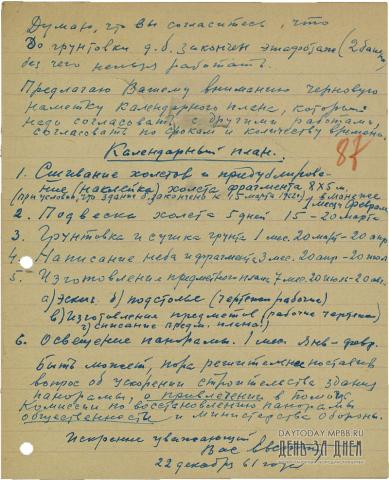 Думаю, что Вы согласитесь, что
до грунтовки д.б. закончен (2
без чего нельзя работать.
Предлагаю Вашему вниманию черновую
наметку календарного плана, который
надо согласовать с другими работами,
согласовать по срокам и количеству времени.
87
Календарный план.
1. Сшивание холстов и
(наклейка) холста фрагмента 8х5 м.
(при условии, что здание б. закончено к 15 марта 1962 г.) в
2. Подвеска холста 5 дней 15-20 марта
3. Грунтовка и сушка грунта 1 мес. 20 март-20 апр
4. Написание неба и фрагмента 3 мес. 20 апр-20 июл
5. Изготовление предметн план 7 мес. 20 июн-20
а) Эскиз. б) подстолье (чертежи рабочие)
в) Изготовление предметов (рабочие чертежи)
г) списание предм. плана!)
6. Освещение панорамы. 1 мес. янв-февр.
Быть может, пора решительнее поставить
вопрос об ускорении строительства здания
панорамы, о привлечении в помощь
Комиссии по восстановлению панорамы
общественности и министерства обороны.
Искренне уважающий
Вас
22 декабря 61 года
DAYTODAY.MPBB.RU
ДЕНЬ ЗА ДНЕМ